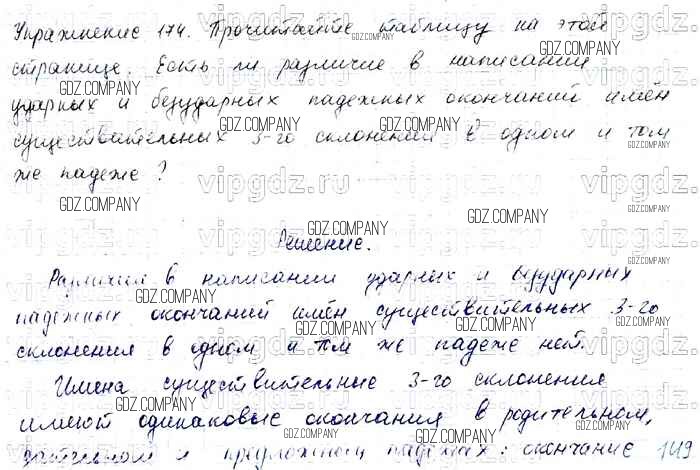 Упражнение 174. Прочитайте таблицу на этой
странице. Есть ли различие в написании
ударных и безударных падежных окончаний имён
существительных 3-го склонения в одном и том
же падеже?
Решение.
Различий в написании ударных и безударных
падежных окончаний имён существительных 3-го
склонения в одном и том же падеже нет.
Имена существительные 3-го склонения
имеют одинаковые окончания в родительном,
дательном и предложном падежах: окончание
149
vipgdz.ru
GDZ.COMPANY